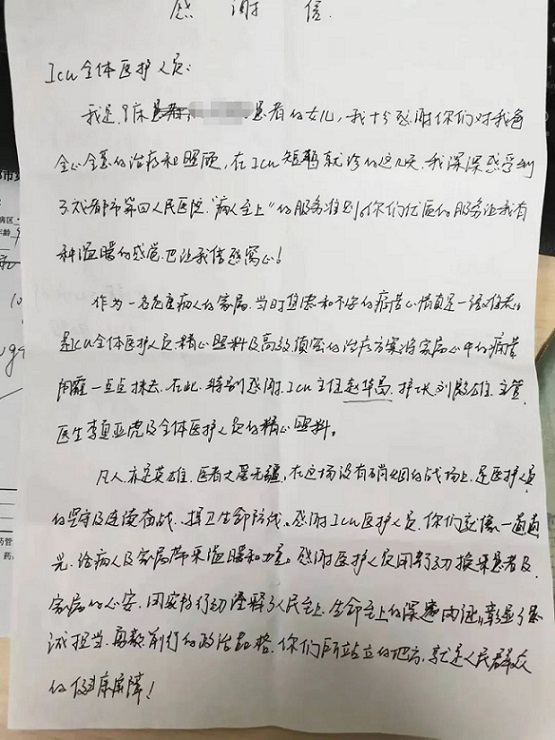 感谢信
Icu全体医护人员:
我是9床患者的女儿,我十分感谢你们对我爸
全心全意的治疗和照顾,在Icu短暂就诊的这几天,我深深感受到
了成都市第四人民医院"病人至上"的服务准则。你们优质的服务让我有
种温暖的感觉,也让我倍感窝心!
作为一名危重病人的家属,当时焦虑和不安的心情真是一言难尽。
是Icu全体医护人员精心照料及高效的治疗方案将家属心中的
阴霾一点点抹去。在此,特别感谢Icu主任赵华昌,护士长,主管
医生李亚虎及全体医护人员的精心照料。
凡人亦是英雄,医者大爱无疆,在这场没有硝烟的战场上,是医护人员
的坚守及连续奋战,捍卫生命防线。感谢Icu医护人员,你们就像一道道
光,给病人及家属带来温暖和力量。感谢医护人员用行动换来患者及
家属的心安,用实际行动诠释了人民至上,生命至上的深邃内涵,彰显了
担当,勇毅前行的政治品格。你们所站立的地方,就是人民群众
的健康屏障!